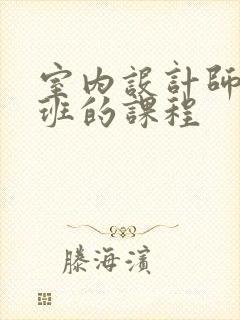 室內設計師
班的課程
滕海濱